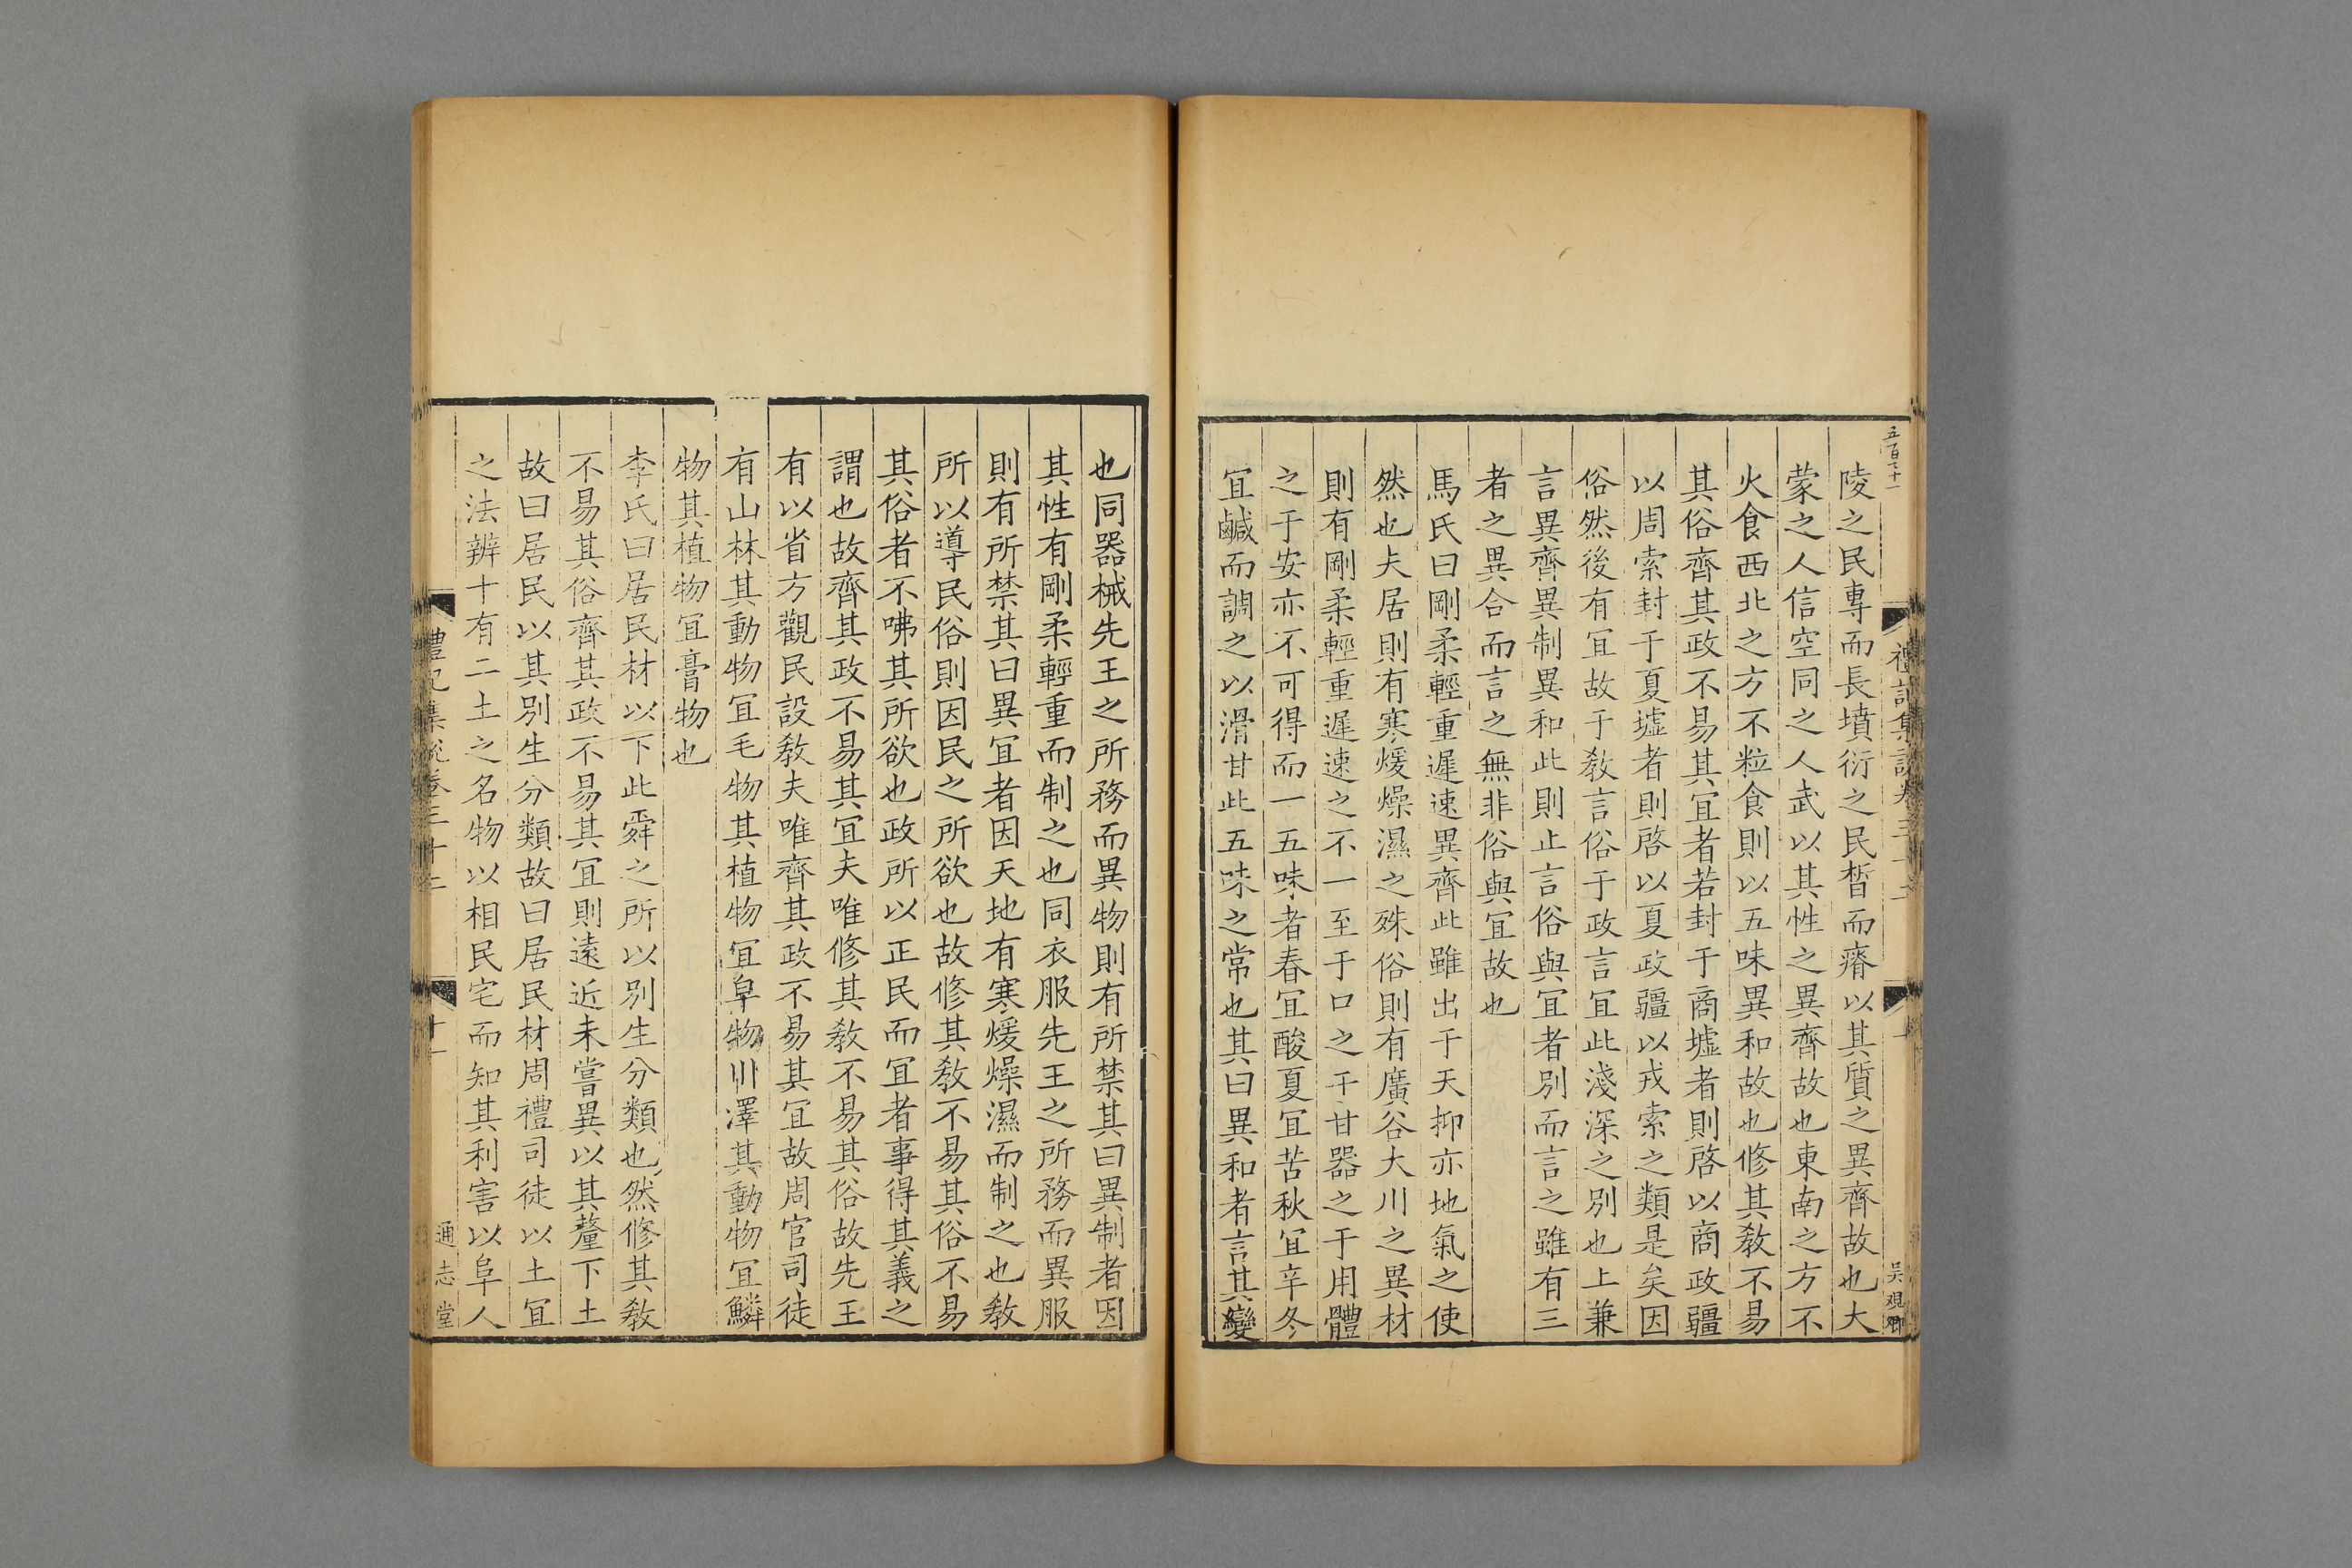 五百七十一
陵之民專而長墳衍之民晳而瘠以其質之異齊故也大
蒙之人信空同之人武以其性之異齊故也東南之方不
火食西北之方不粒食則以五味異和故也修其敎不易
其俗齊其政不易其宜者若封于商墟者則啓以商政疆
以周索封于夏墟者則啓以夏政疆以戎索之類是矣因
俗然後有宜故于敎言俗于政言宜此淺深之別也上兼
言異齊異制異和此則止言俗與宜者別而言之雖有三
者之異合而言之無非俗與宜故也
馬氏曰剛柔輕重遲速異齊此雖出于天抑亦地氣之使
然也夫居則有寒煖燥濕之殊俗則有廣谷大川之異材
則有剛柔輕重遲速之不一至于口之于甘器之于用體
之于安亦不可得而一五味者春宜酸夏宜苦秋宜辛冬
宜鹹而調之以滑甘此五味之常也其曰異和者言其變
禮記集說卷三十二
吳覌卿
也同器械先王之所務而異物則有所禁其曰異制者因
其性有剛柔輕重而制之也同衣服先王之所務而異服
則有所禁其曰異宜者因天地有寒煖燥濕而制之也敎
所以導民俗則因民之所欲也故修其敎不易其俗不易
其俗者不咈其所欲也政所以正民而宜者事得其義之
謂也故齊其政不易其宜夫唯修其敎不易其俗故先王
有以省方觀民設敎夫唯齊其政不易其宜故周官司徒
有山林其動物宜毛物其植物宜皁物川澤其動物宜鱗
物其植物宜膏物也
李氏曰居民材以下此舜之所以別生分類也然修其敎
不易其俗齊其政不易其宜則遠近未嘗異以其釐下土
故曰居民以其別生分類故曰居民材周禮司徒以土宜
之法辨十有二土之名物以相民宅而知其利害以阜人
禮記集說卷三十二
十一
通志堂